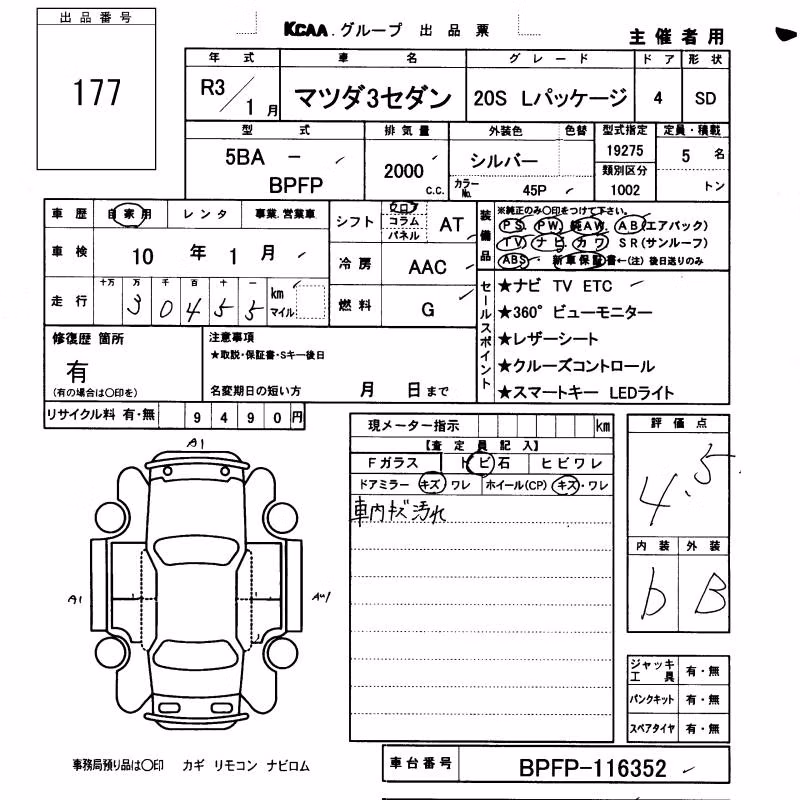 出品番号
177
KCAA.グループ 出品票
主催者用
年式 車名 グレード ドア 形状
R3/1月 マツダ3セダン 20S Lパッケージ 4 SD
型式 排気量 外装色 色替 型式指定 定員・積載
5BA － BPFP 2000 C.C. シルバー カラーNo. 45P 19275 5名
類別区分 1002 トン
車歴 自家用 レンタ 事業.営業車
車検 10年1月
走行 十万 万 千 百 十 一 km マイル
30455
シフト フロア コラム パネル AT
冷房 AAC
燃料 G
装備品
※純正のみ○印をつけて下さい。
PS. PW. 純AW. AB(エアバック)
TV ナビ カワ SR(サンルーフ)
ABS 新車保証書←(注)後日送りのみ
セールスポイント
★ナビ TV ETC
★360° ビューモニター
★レザーシート
★クルーズコントロール
★スマートキー LEDライト
修復歴 箇所
有
(有の場合は○印を)
注意事項
★取説・保証書・Sキー後日
名変期日の短い方 月 日まで
リサイクル料 有・無 9490円
現メーター指示 km
【査定員記入】
Fガラス トビ石 ヒビワレ
ドアミラー キズ ワレ ホイール(CP) キズ・ワレ
車内キズ汚れ
評価点
4.5
内装 外装
b B
A1
A1
AW1
ジャッキ工具 有・無
パンクキット 有・無
スペアタイヤ 有・無
事務局預り品は○印 カギ リモコン ナビロム
車台番号 BPFP-116352